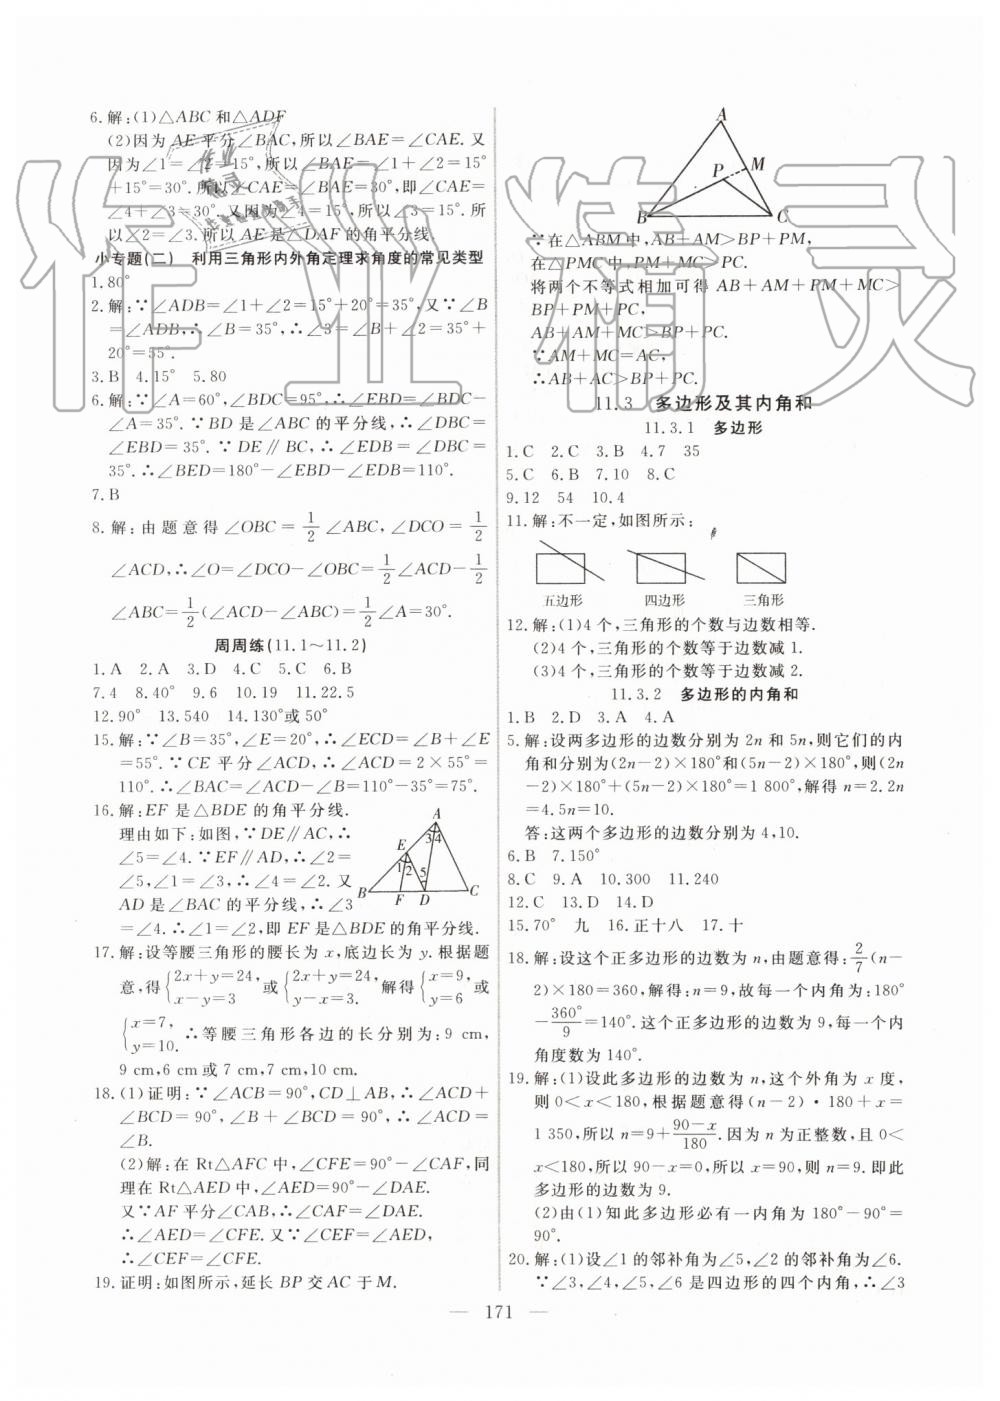 6.解:(1)△ABC和△ADF
(2)因为AE平分∠BAC,所以∠BAE=∠CAE.又
因为∠1=∠2=15°,所以∠BAE=∠1+∠2=15°
+15°=30°.所以∠CAE=∠BAE=30°,即∠CAE=
∠4+∠3=30°.又因为∠4=15°,所以∠3=15°.所
以∠2=∠3.所以AE是△DAF的角平分线.
小专题(二) 利用三角形内外角定理求角度的常见类型
1.80°
2.解:∵∠ADB=∠1+∠2=15°+20°=35°,又∵∠B
=∠ADB,∴∠B=35°,∴∠3=∠B+∠2=35°+
20°=55°.
3.B 4.15° 5.80
6.解:∵∠A=60°,∠BDC=95°,∴∠EBD=∠BDC-
∠A=35°.∵BD是∠ABC的平分线,∴∠DBC=
∠EBD=35°.∵DE∥BC,∴∠EDB=∠DBC=
35°.∴∠BED=180°-∠EBD-∠EDB=110°.
7.B
8.解:由题意得∠OBC=1/2∠ABC,∠DCO=1/2
∠ACD,∴∠O=∠DCO-∠OBC=1/2∠ACD-1/2
∠ABC=1/2(∠ACD-∠ABC)=1/2∠A=30°.
周周练(11.1~11.2)
1.A 2.A 3.D 4.C 5.C 6.B
7.4 8.40° 9.6 10.19 11.22.5
12.90° 13.540 14.130°或50°
15.解:∵∠B=35°,∠E=20°,∴∠ECD=∠B+∠E
=55°.∵CE平分∠ACD,∴∠ACD=2×55°=
110°.∴∠BAC=∠ACD-∠B=110°-35°=75°.
16.解:EF是△BDE的角平分线.
理由如下:如图,∵DE∥AC,∴
∠5=∠4.∵EF∥AD,∴∠2=
∠5,∠1=∠3,∴∠4=∠2.又
AD是∠BAC的平分线,∴∠3
=∠4.∴∠1=∠2,即EF是∠BDE的角平分线.
A
3 4
E
1 2 5
B F D C
17.解:设等腰三角形的腰长为x,底边长为y.根据题
意,得{2x+y=24,x-y=3或{2x+y=24,y-x=3.解得{x=9,y=6或
{x=7,y=10.∴等腰三角形各边的长分别为:9 cm,
9 cm,6 cm或7 cm,7 cm,10 cm.
18.(1)证明:∵∠ACB=90°,CD⊥AB,∴∠ACD+
∠BCD=90°,∠B+∠BCD=90°,∴∠ACD=
∠B.
(2)解:在Rt△AFC中,∠CFE=90°-∠CAF,同
理在Rt△AED中,∠AED=90°-∠DAE.
又∵AF平分∠CAB,∴∠CAF=∠DAE.
∴∠AED=∠CFE.又∵∠CEF=∠AED,
∴∠CEF=∠CFE.
19.证明:如图所示,延长BP交AC于M.
A
P M
B C
∵在△ABM中,AB+AM>BP+PM,
在△PMC中,PM+MC>PC.
将两个不等式相加可得AB+AM+PM+MC>
BP+PM+PC,
AB+AM+MC>BP+PC.
∵AM+MC=AC,
∴AB+AC>BP+PC.
11.3 多边形及其内角和
11.3.1 多边形
1.C 2.C 3.B 4.7 35
5.C 6.B 7.10 8.C
9.12 54 10.4
11.解:不一定,如图所示:
五边形 四边形 三角形
12.解:(1)4个,三角形的个数与边数相等.
(2)4个,三角形的个数等于边数减1.
(3)4个,三角形的个数等于边数减2.
11.3.2 多边形的内角和
1.B 2.D 3.A 4.A
5.解:设两多边形的边数分别为2n和5n,则它们的内
角和分别为(2n-2)×180°和(5n-2)×180°,则(2n
-2)×180°+(5n-2)×180°=1 800°,解得n=2.2n
=4.5n=10.
答:这两个多边形的边数分别为4,10.
6.B 7.150°
8.C 9.A 10.300 11.240
12.C 13.D 14.D
15.70° 九 16.正十八 17.十
18.解:设这个正多边形的边数为n,由题意得:2/7(n-
2)×180=360,解得:n=9,故每一个内角为:180°
-360°/9=140°.这个正多边形的边数为9,每一个内
角度数为140°.
19.解:(1)设此多边形的边数为n,这个外角为x度,
则0<x<180,根据题意得(n-2)·180+x=
1 350,所以n=9+90-x/180.因为n为正整数,且0<
x<180,所以90-x=0,所以x=90,所以n=9.即此
多边形的边数为9.
(2)由(1)知此多边形必有一内角为180°-90°=
90°.
20.解:(1)设∠1的邻补角为∠5,∠2的邻补角为∠6.
∵∠3,∠4,∠5,∠6是四边形的四个内角,∴∠3
— 171 —
作业精灵